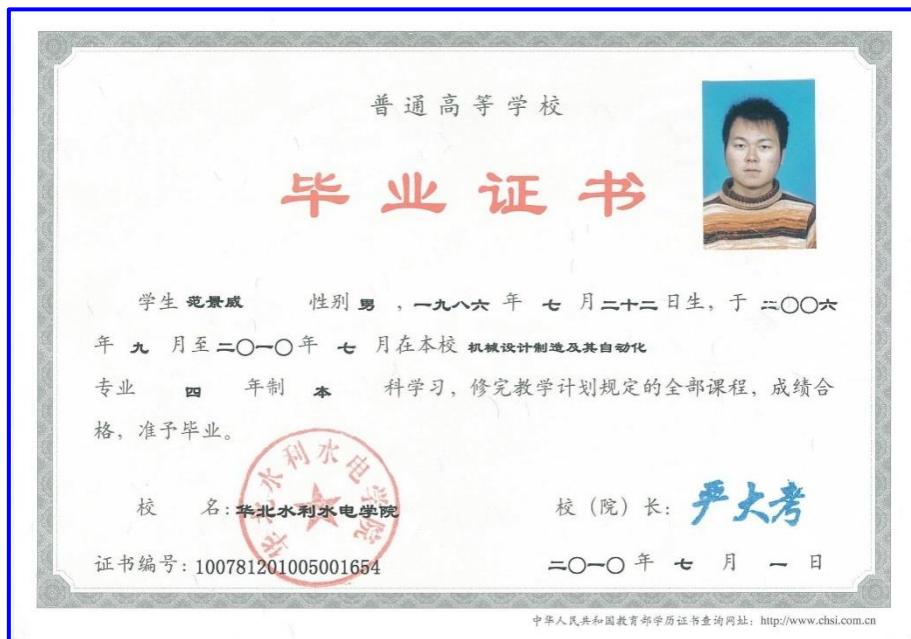 普通高等学校
毕业证书
学生 范景威 性别 男 ，一九八六 年 七 月二十二日生，于 二〇〇六
年 九 月至二〇一〇年 七 月在本校 机械设计制造及其自动化
专业 四 年制 本 科学习，修完教学计划规定的全部课程，成绩合
格，准予毕业。
华北水利水电学院
校 名：华北水利水电学院 校（院）长：严大考
证书编号：100781201005001654 二〇一〇 年 七 月 一 日
中华人民共和国教育部学历证书查询网址：http://www.chsi.com.cn